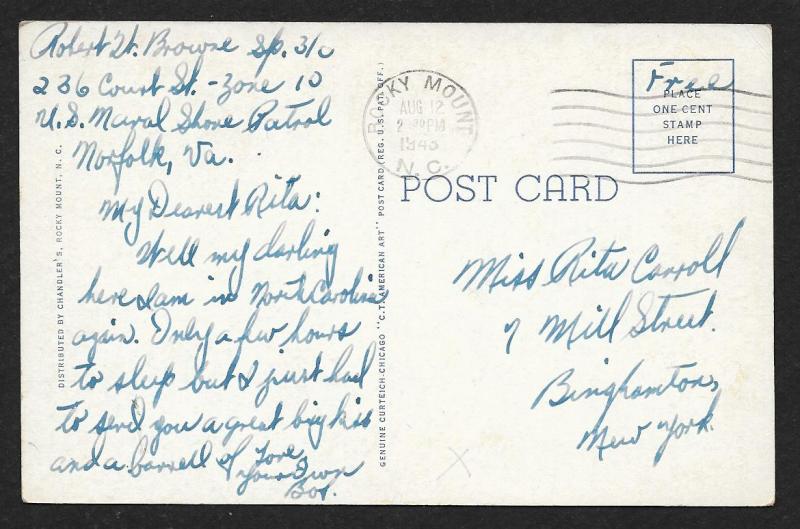 Robert W. Browne Sp. 3/c
236 Court St. - Zone 10
U.S. Naval Shore Patrol
Norfolk, Va.
My Dearest Rita:
Well my darling
here I am in North Carolina
again. Only a few hours
to sleep but I just had
to send you a great big kiss
and a barrell of Love
Your Own
Bob.
DISTRIBUTED BY CHANDLER'S, ROCKY MOUNT, N. C.
GENUINE CURTEICH-CHICAGO "C.T. AMERICAN ART" POST CARD (REG. U.S. PAT. OFF.)
ROCKY MOUNT
AUG 12
PM
1943
N.C.
Free
PLACE
ONE CENT
STAMP
HERE
POST CARD
Miss Rita Carroll
7 Mill Street.
Binghamton,
New York.
X